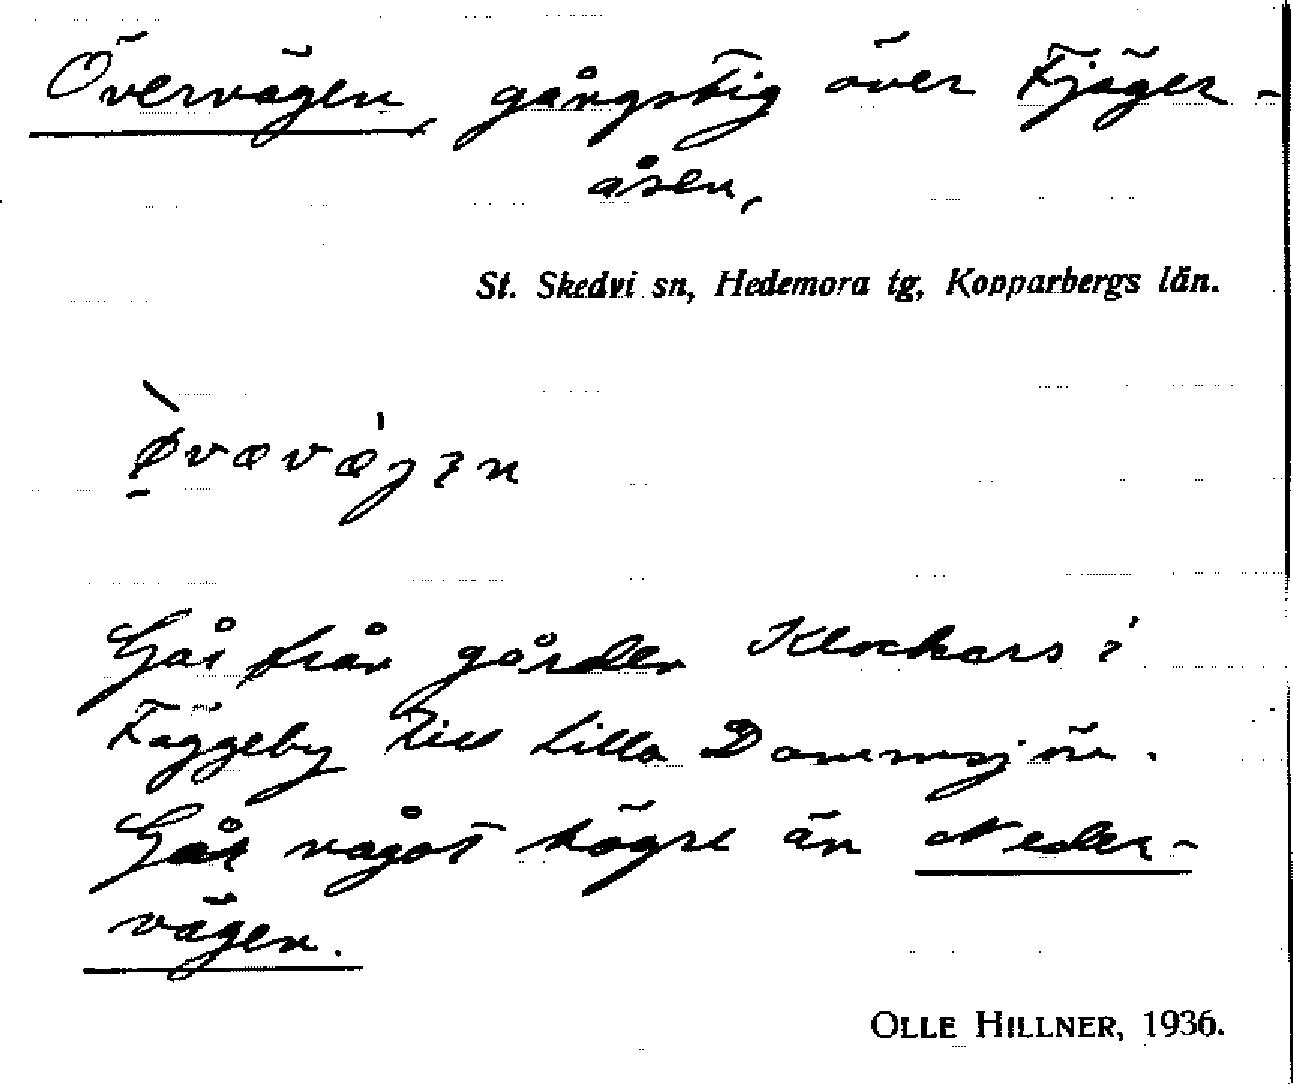 Övervägen, gångstig över Fjäger-
åsen,
St. Skedvi sn, Hedemora tg, Kopparbergs län.
Går från gården Klockars i
Fäggeby till Lilla Dammsjön.
Går något högre än Neder-
vägen.
OLLE HILLNER, 1936.